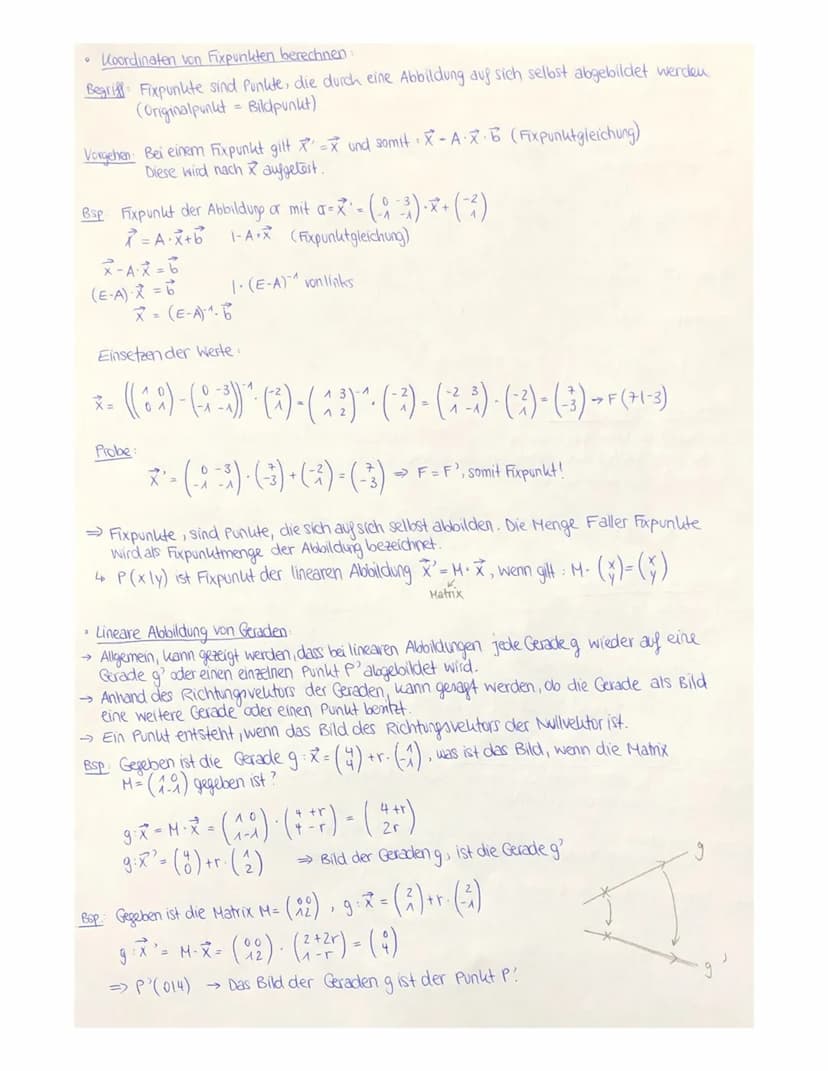 • Koordinaten von Fixpunkten berechnen:
Begriff: Fixpunkte sind Punkte, die durch eine Abbildung auf sich selbst abgebildet werden
(Originalpunkt = Bildpunkt)
Vorgehen: Bei einem Fixpunkt gilt x⃗' = x⃗ und somit: x⃗ - A · x⃗ · b⃗ (Fixpunktgleichung)
Diese wird nach x⃗ aufgelöst.
Bsp: Fixpunkt der Abbildung α mit α = x⃗' = (0 -3; -1 -1) · x⃗ + (-2; 1)
x⃗ = A · x⃗ + b⃗ | - A · x⃗ (Fixpunktgleichung)
x⃗ - A · x⃗ = b⃗
(E-A) · x⃗ = b⃗ | · (E-A)⁻¹ von links
x⃗ = (E-A)⁻¹ · b⃗
Einsetzen der Werte:
x⃗ = ((1 0; 0 1) - (0 -3; -1 -1))⁻¹ · (-2; 1) = (1 3; 1 2)⁻¹ · (-2; 1) = (-2 3; 1 -1) · (-2; 1) = (7; -3) → F(7|-3)
Probe:
x⃗' = (0 -3; -1 -1) · (7; -3) + (-2; 1) = (7; -3) ⇒ F = F', somit Fixpunkt!
⇒ Fixpunkte, sind Punkte, die sich auf sich selbst abbilden. Die Menge F aller Fixpunkte
wird als Fixpunktmenge der Abbildung bezeichnet.
↳ P(x|y) ist Fixpunkt der linearen Abbildung x⃗' = M · x⃗, wenn gilt: M · (x; y) = (x; y)
Matrix
• Lineare Abbildung von Geraden:
→ Allgemein, kann gezeigt werden, dass bei linearen Abbildungen jede Gerade g wieder auf eine
Gerade g' oder einen einzelnen Punkt P' abgebildet wird.
→ Anhand des Richtungsvektors der Geraden, kann gesagt werden, ob die Gerade als Bild
eine weitere Gerade oder einen Punkt besitzt.
→ Ein Punkt entsteht, wenn das Bild des Richtungsvektors der Nullvektor ist.
Bsp: Gegeben ist die Gerade g: x⃗ = (4; 4) + r · (1; -1), was ist das Bild, wenn die Matrix
M = (1 0; 1 -1) gegeben ist?
g: x⃗ = M · x⃗ = (1 0; 1 -1) · (4 + r; 4 - r) = (4 + r; 2r)
g: x⃗' = (4; 0) + r · (1; 2) ⇒ Bild der Geraden g, ist die Gerade g'
g
Bsp: Gegeben ist die Matrix M = (0 0; 1 2), g: x⃗ = (2; 1) + r · (2; -1)
g: x⃗' = M · x⃗ = (0 0; 1 2) · (2 + 2r; 1 - r) = (0; 4)
g'
⇒ P'(0|4) → Das Bild der Geraden g ist der Punkt P'.